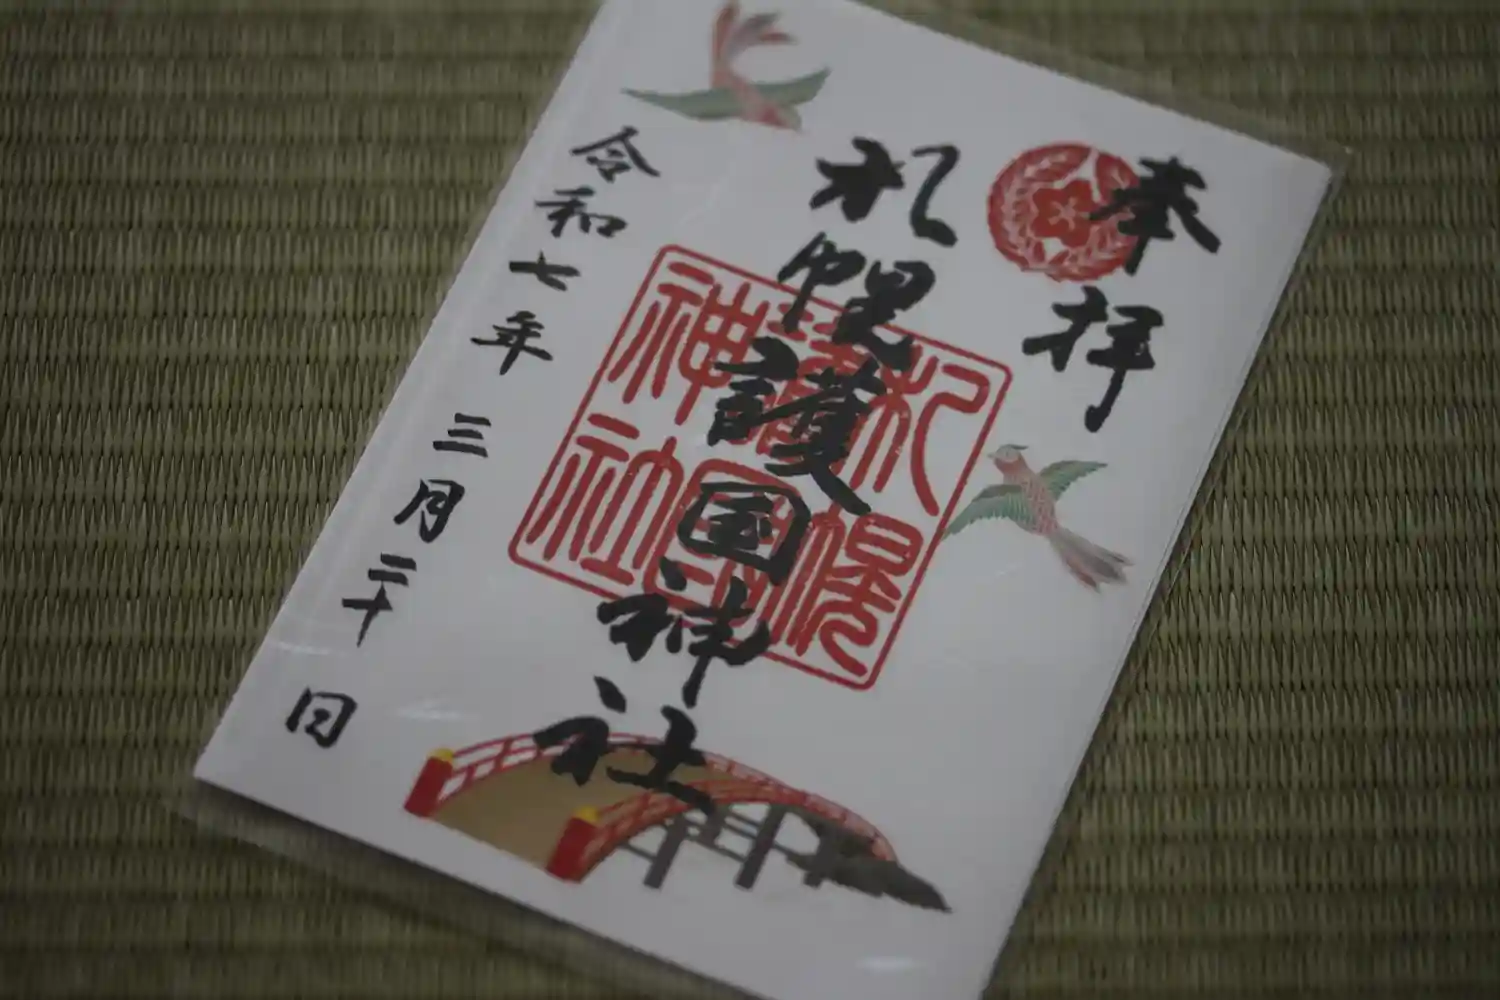 奉拝
札幌護国神社
札幌
護国
神社
令和七年 三月二十日